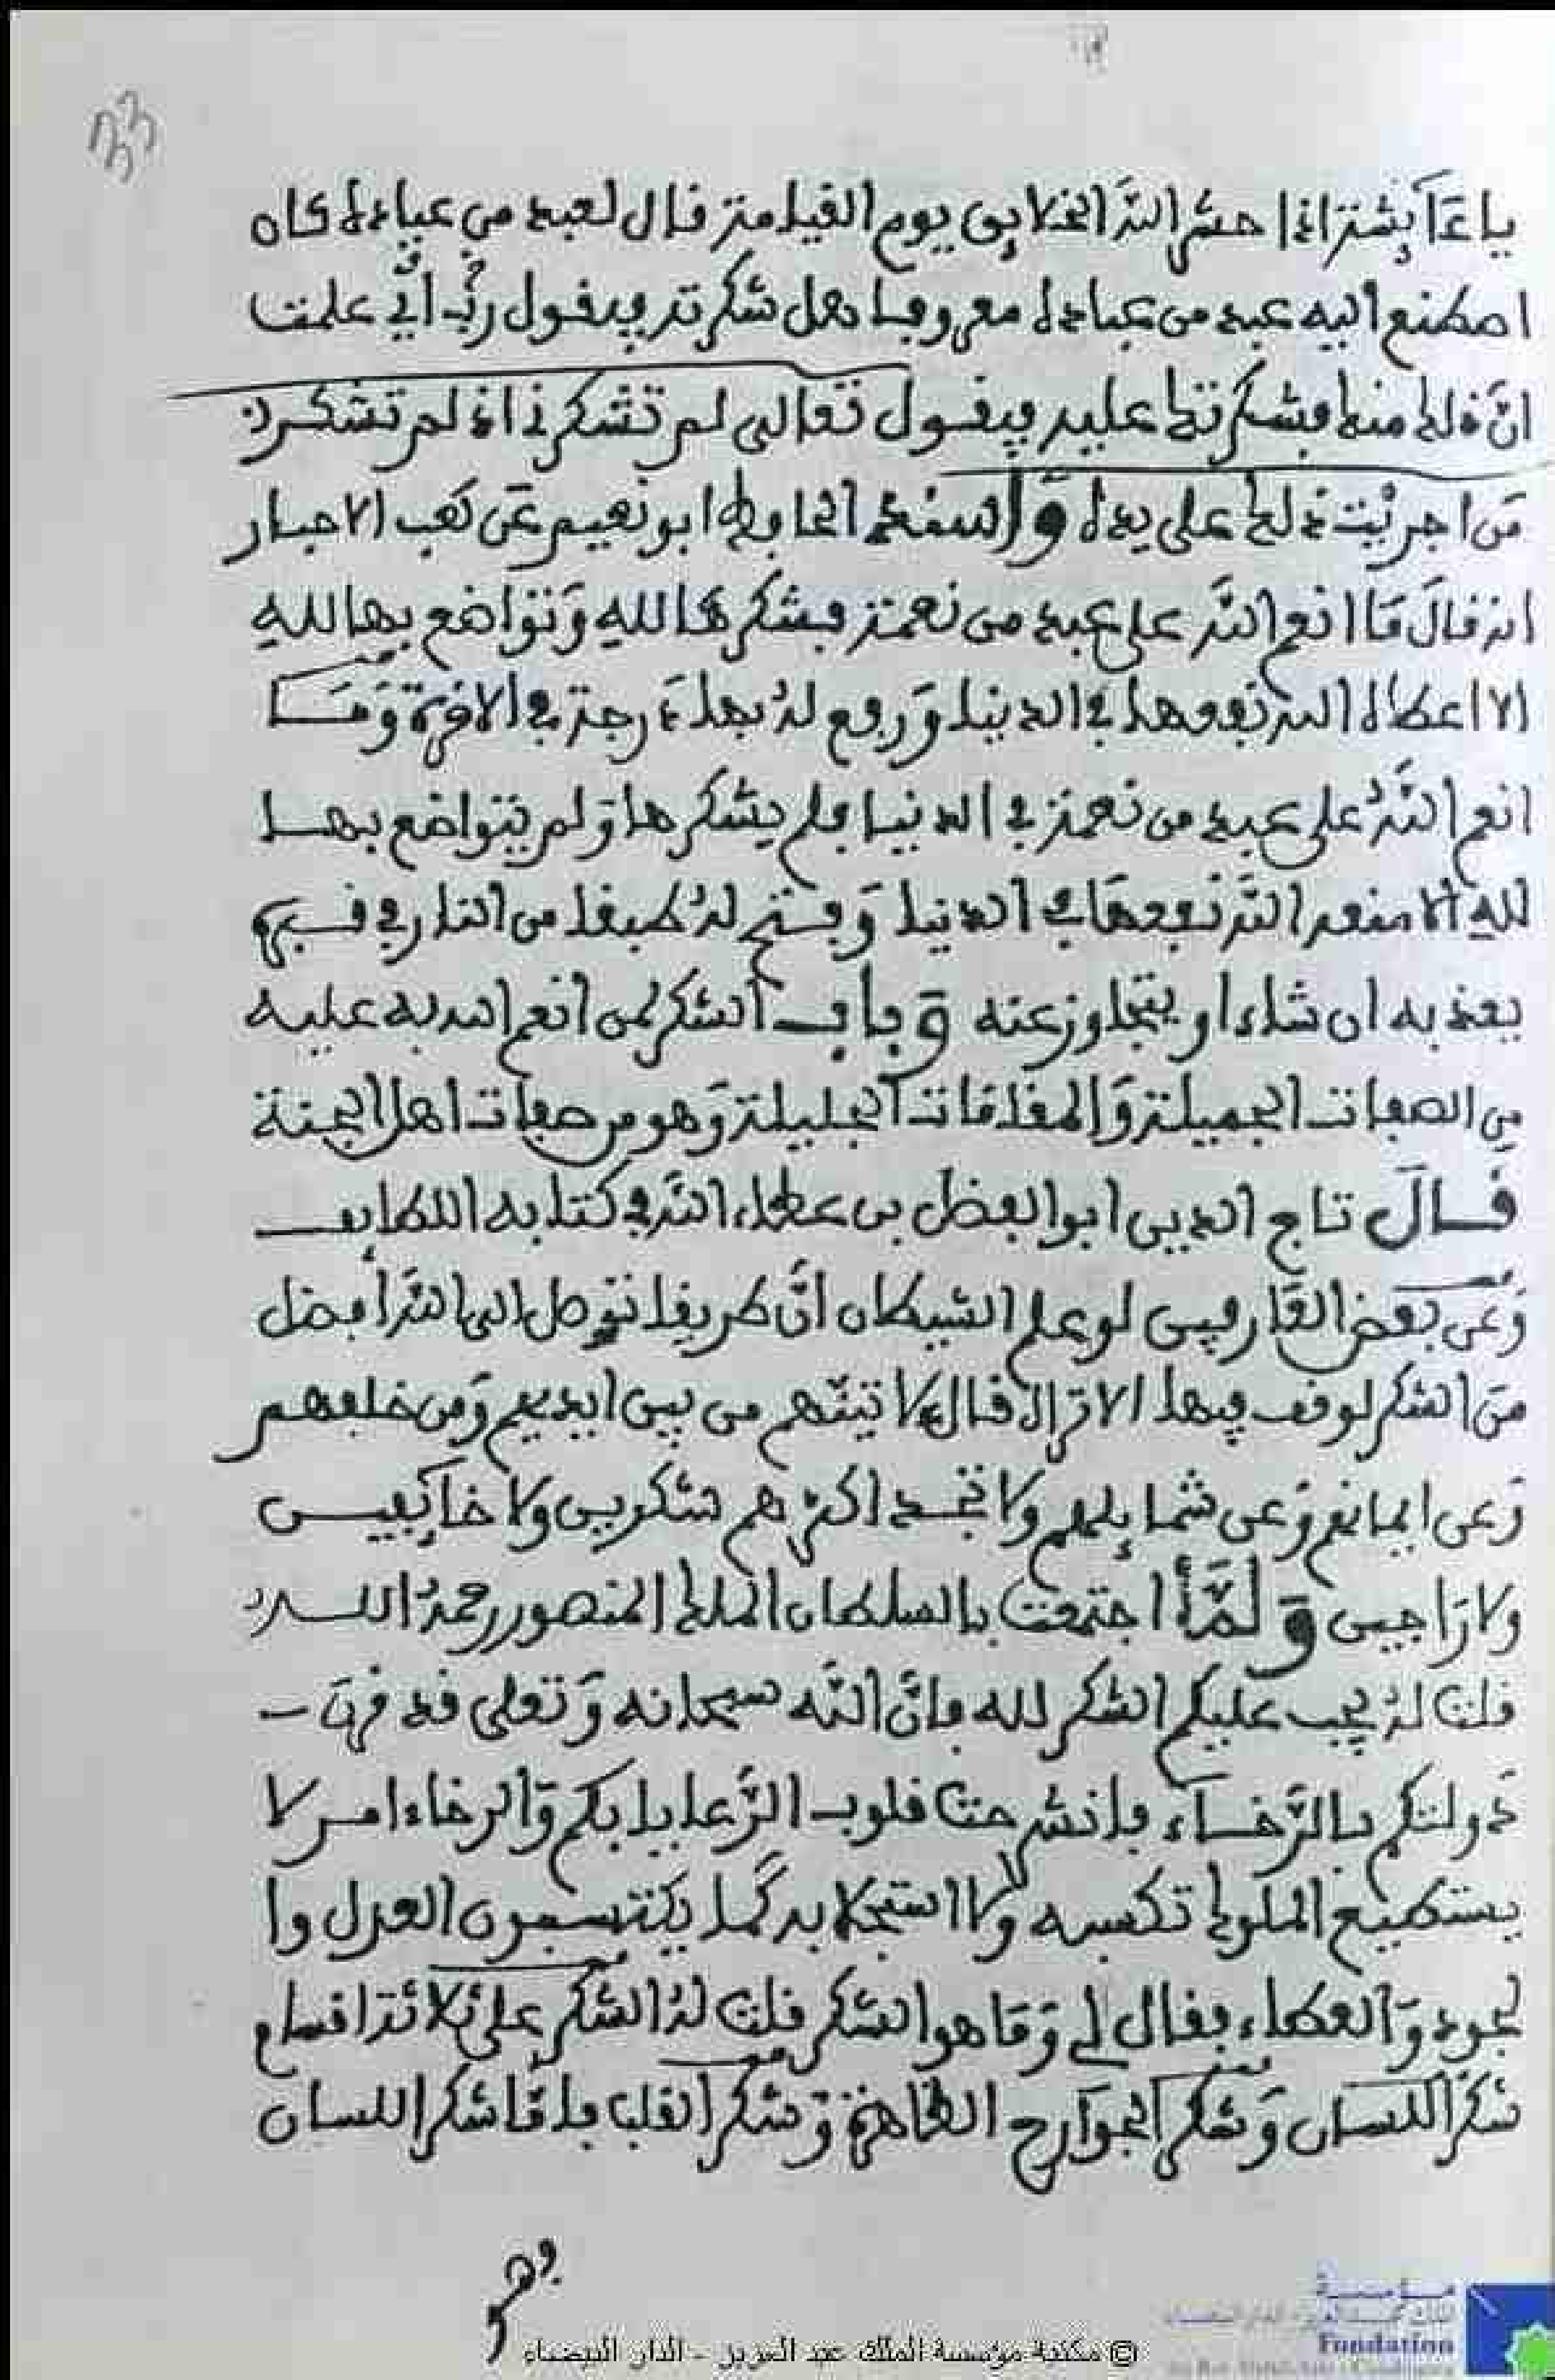 يا عَآئِشة اذا حشر اللهُ الخلايق يوم القيامة قال لعبد من عباده كان
اصطنع اليه عبد من عباده معروفا هل شكرته فيقول ربِّ انّي علمت
انّ ذلك منك فشكرتك عليه فيقول تعالى لم تشكرني اذ لم تشكر
مَن اجريْت ذلك على يده وَاسند الحافظ ابو نعيم عَن كعب الاحبار
انه قالَ مَا انعم اللهُ على عبد من نعمة فشكرها لله وَتواضع بها لله
الا اعطاه الله نفعها في الدنيا وَرفع لهُ بها دَرجة في الاخرة وَمَا
انعم اللهُ على عبد من نعمة في الدنيا فلم يشكرها وَلم يتواضع بها
لله الا منعه اللهُ نفعهَا في الدنيا وَفتح لهُ طبقا من النار في قبره
يعذبه ان شاء او يتجاوز عنه وَباب الشكر لمن انعم الله به عليه
من الصفات الجميلة وَالمقامَات الجليلة وَهو من صفات اهل الجنة
قــالَ تاج الدين ابو الفضل بن عطاء اللهُ في كتابه اللطايف
وَعن بعض العَارفين لو علم الشيطان انَّ طريقا توصل الى اللهُ افضل
منَ الشكر لوقف فيها الا تراه قال لاتينّهم من بين ايديهم وَمن خلفهم
وَعن ايمانهم وَعن شمايلهم ولا تجد اكثرهم شكرين ولا خآئفين
ولا رَاجين وَلمَّا اجتمعت بالسلطان الملك المنصور رحمهُ الله
قلت لهُ يجب عليكم الشكر لله فانَّ اللّه سبحانه وَتعلى قد قرن
دَولتكم بالرَّخــاء فانشرحت قلوب الرَّعايا بكم وَالرخاء امر لا
يستطيع الملوك تكسبه ولا استجلابه كَما يكتسبون العدل وا
لجود وَالعطاء فقال لي وَمَا هو الشكر قلت لهُ الشكر علىٰ ثلاثة اقسام
شكرُ اللسان وَشكر الجوَارح الظاهرة وَشكر القلب فامَّا شكر اللسان
فهو
© مكتبة مؤسسة الملك عبد العزيز - الدار البيضاء
مؤسسة
Fondation